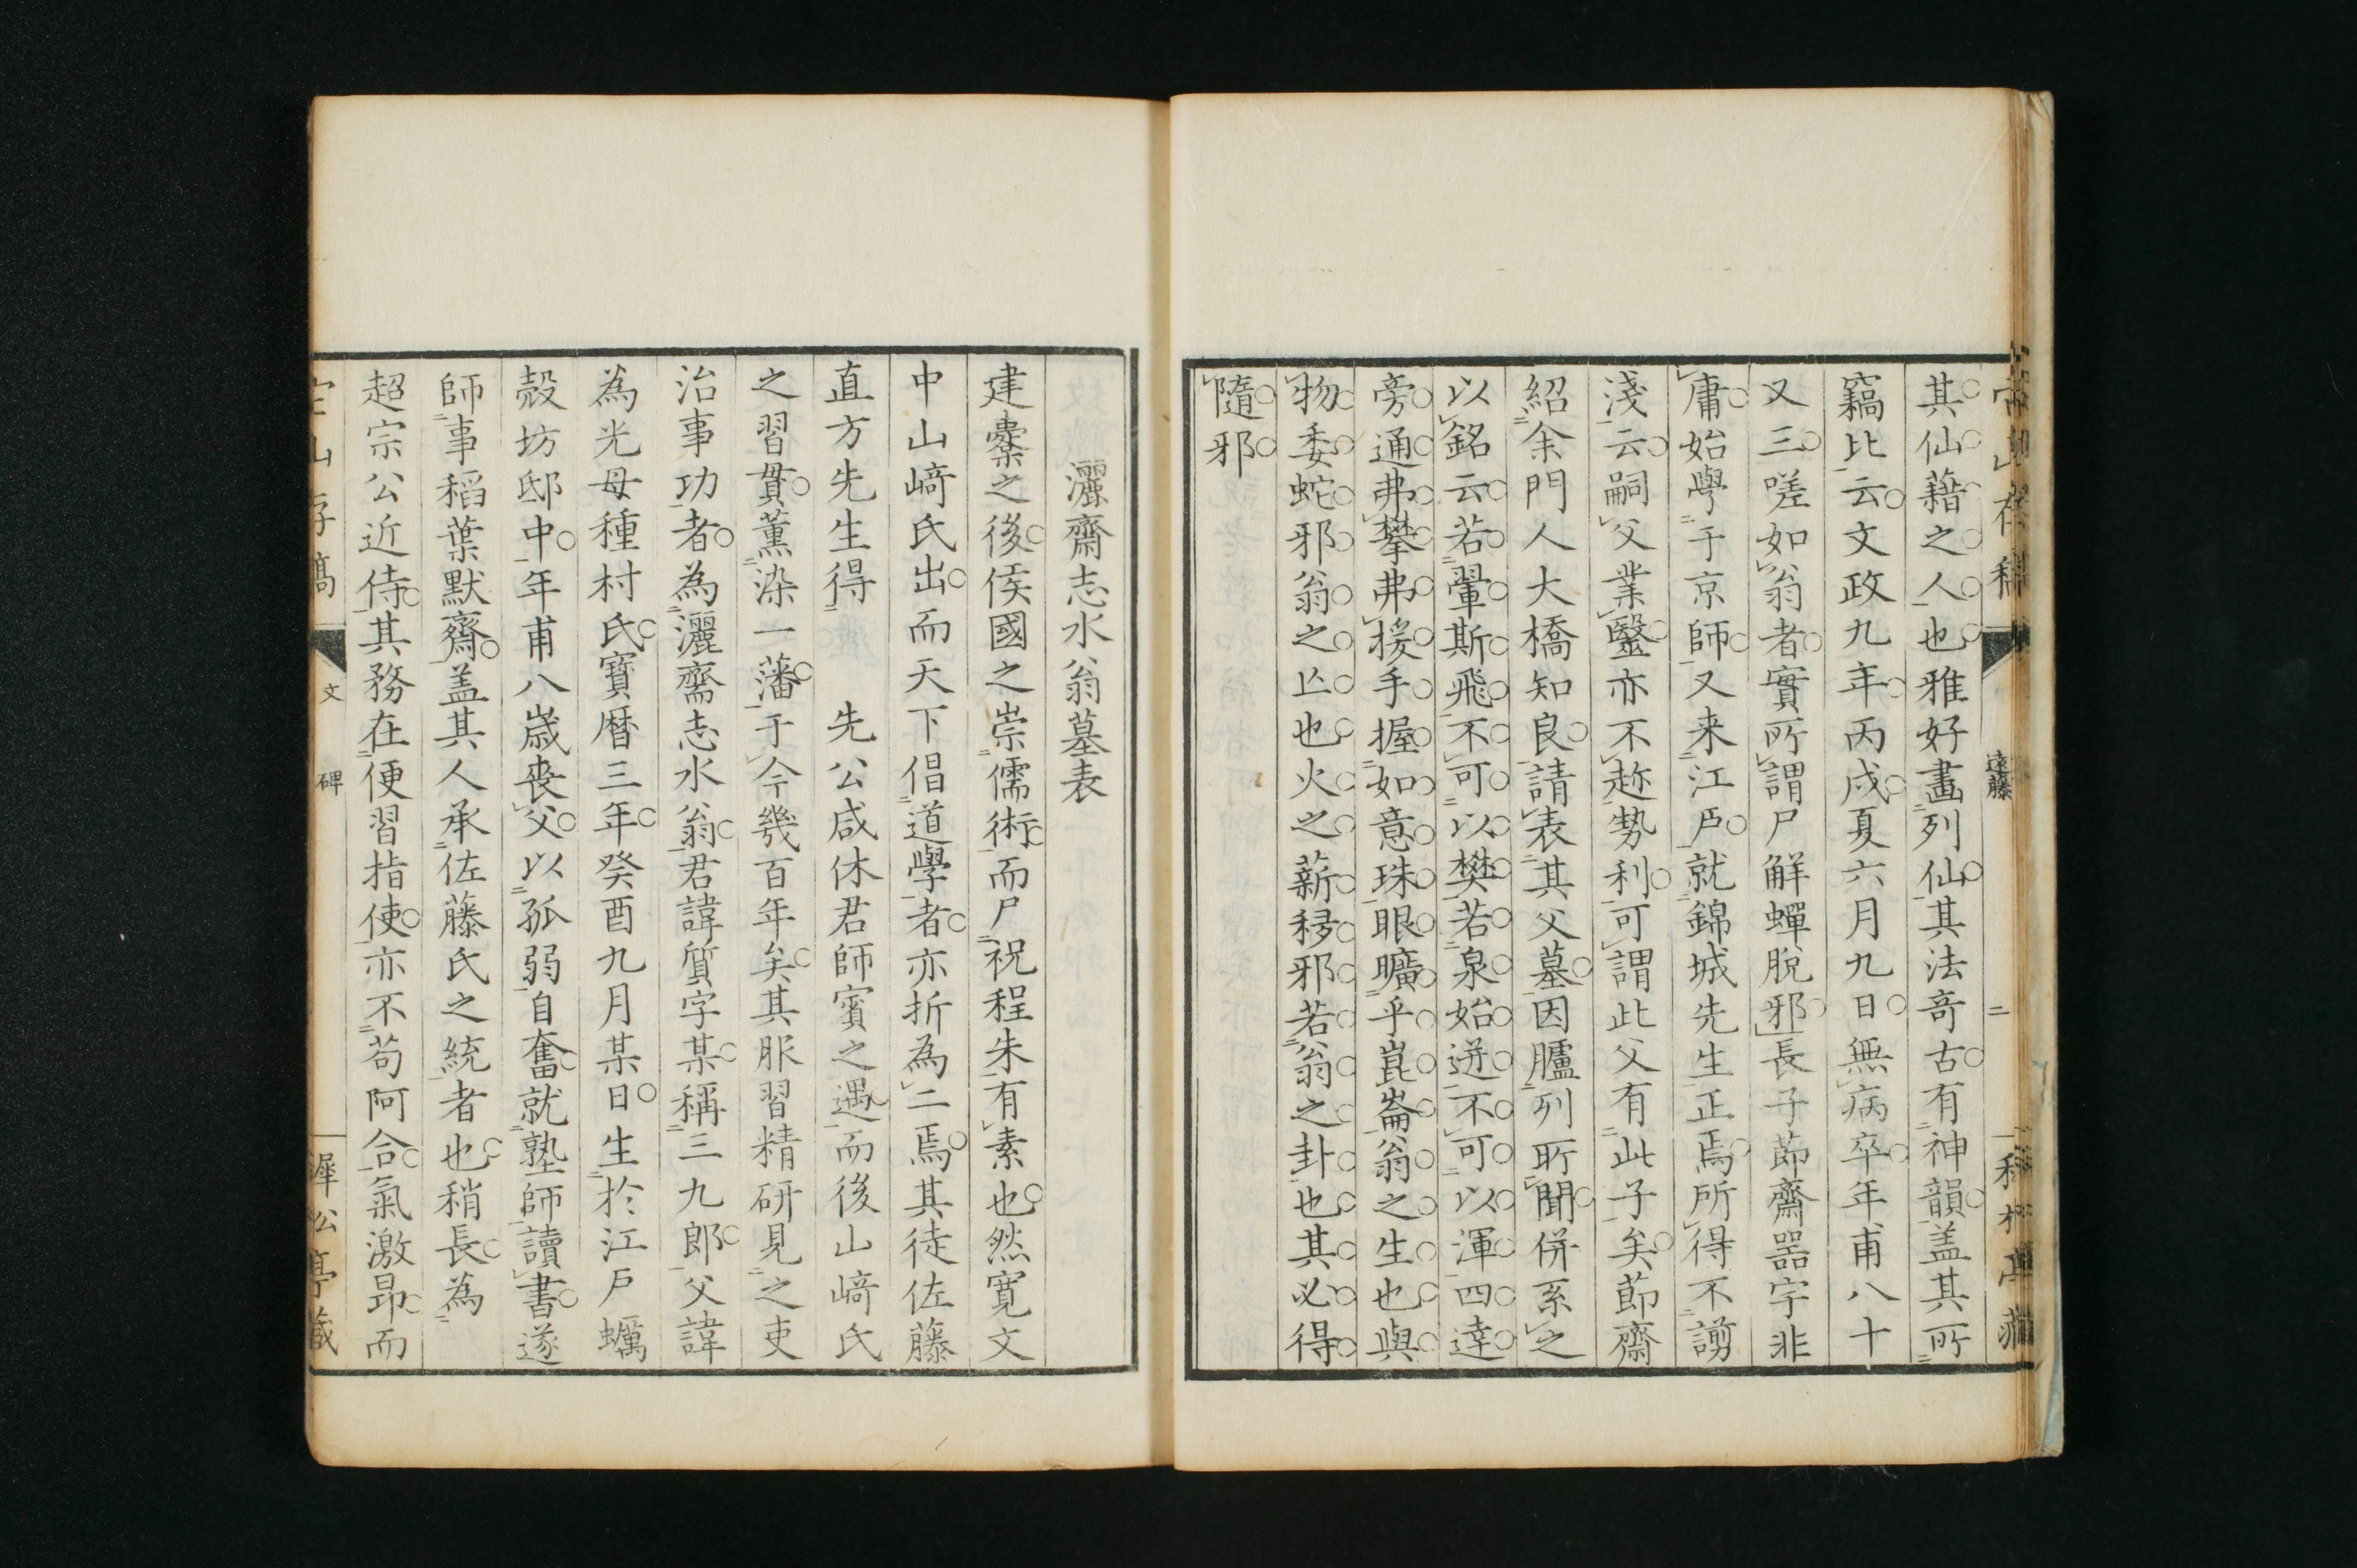 遠藤
二
其仙藉之人也雅好畫列仙其法奇古有神韻盖其所
竊比云文政九年丙戌夏六月九日無病卒年甫八十
又三嗟如翁者實所謂尸解蟬脫邪長子莭齋噐宇非
庸始學于京師又来江戶就錦城先生正焉所得不謭
淺云嗣父業醫亦不趂勢利可謂此父有此子矣莭齋
紹余門人大橋知良請表其父墓因臚列所聞併系之
以銘云若翬斯飛不可以樊若泉始逬不可以渾四達
旁通弗攀弗援手握如意珠眼曠乎崑崙翁之生也與
物委蛇邪翁之亾也火之薪移邪若翁之卦也其必得
隨邪
灑齋志水翁墓表
建櫜之後侯國之崇儒術而尸祝程朱有素也然寬文
中山﨑氏出而天下倡道學者亦折為二焉其徒佐藤
直方先生得先公咸休君師賓之遇而後山﨑氏
之習貫薰染一藩于今幾百年矣其服習精研見之吏
治事功者為灑齋志水翁君諱質字某稱三九郎父諱
為光母種村氏寶暦三年癸酉九月某日生於江戶蠣
殼坊邸中年甫八歲喪父以孤弱自奮就塾師讀書遂
師事稻葉默齋盖其人承佐藤氏之統者也稍長為
超宗公近侍其務在便習指使亦不苟阿合氣激昂而
山存稿
文
碑